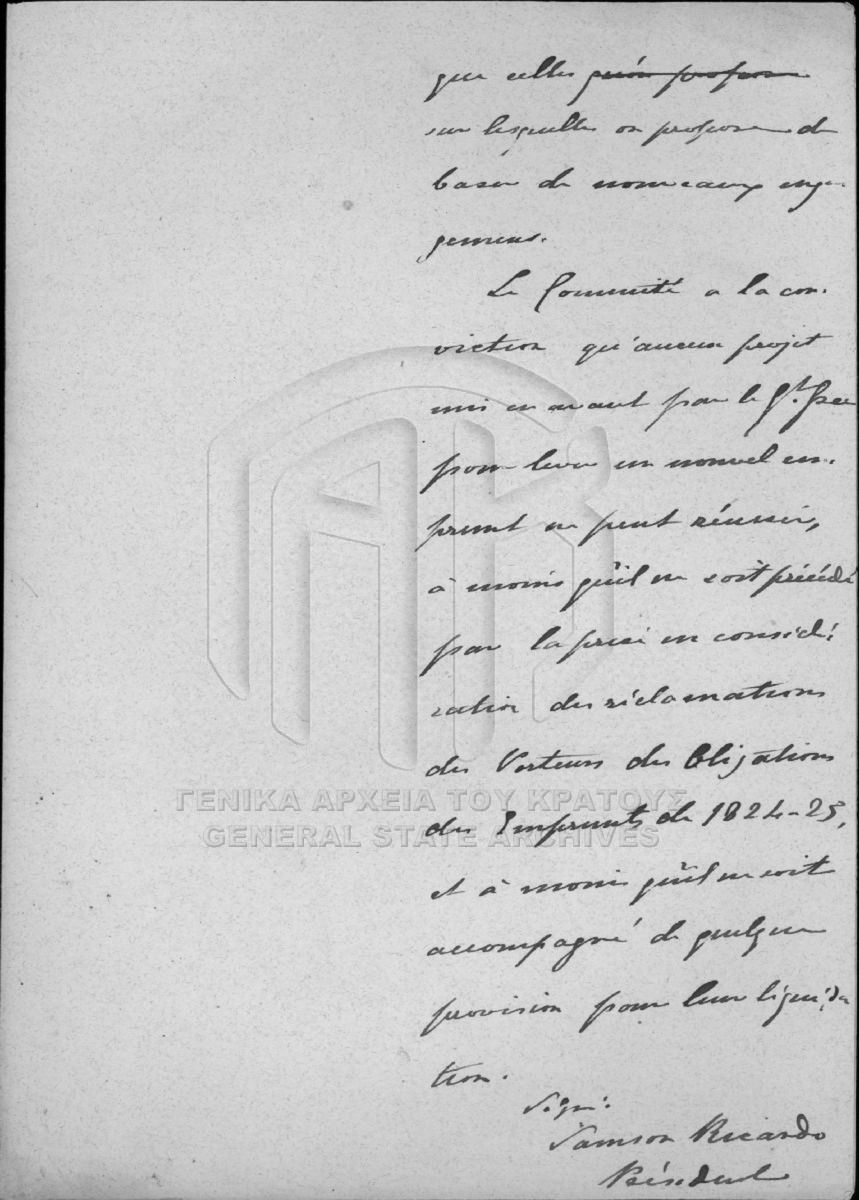 que celles qu'on propose
sur lesquelles on propose de
baser de nouveaux enga-
gemens.
Le Committé a la con-
viction qu'aucun projet
mis en avant par le Gt. Grec
pour lever un nouvel em-
prunt ne peut réussir,
à moins qu'il ne soit précédé
par la prise en considé-
ration des réclamations
des Porteurs des Obligations
des Emprunts de 1824-25,
et à moins qu'il ne soit
accompagné de quelque
provision pour leur liquida
tion.
Signé:
Samson Ricardo
Président
ΓΕΝΙΚΑ ΑΡΧΕΙΑ ΤΟΥ ΚΡΑΤΟΥΣ
GENERAL STATE ARCHIVES